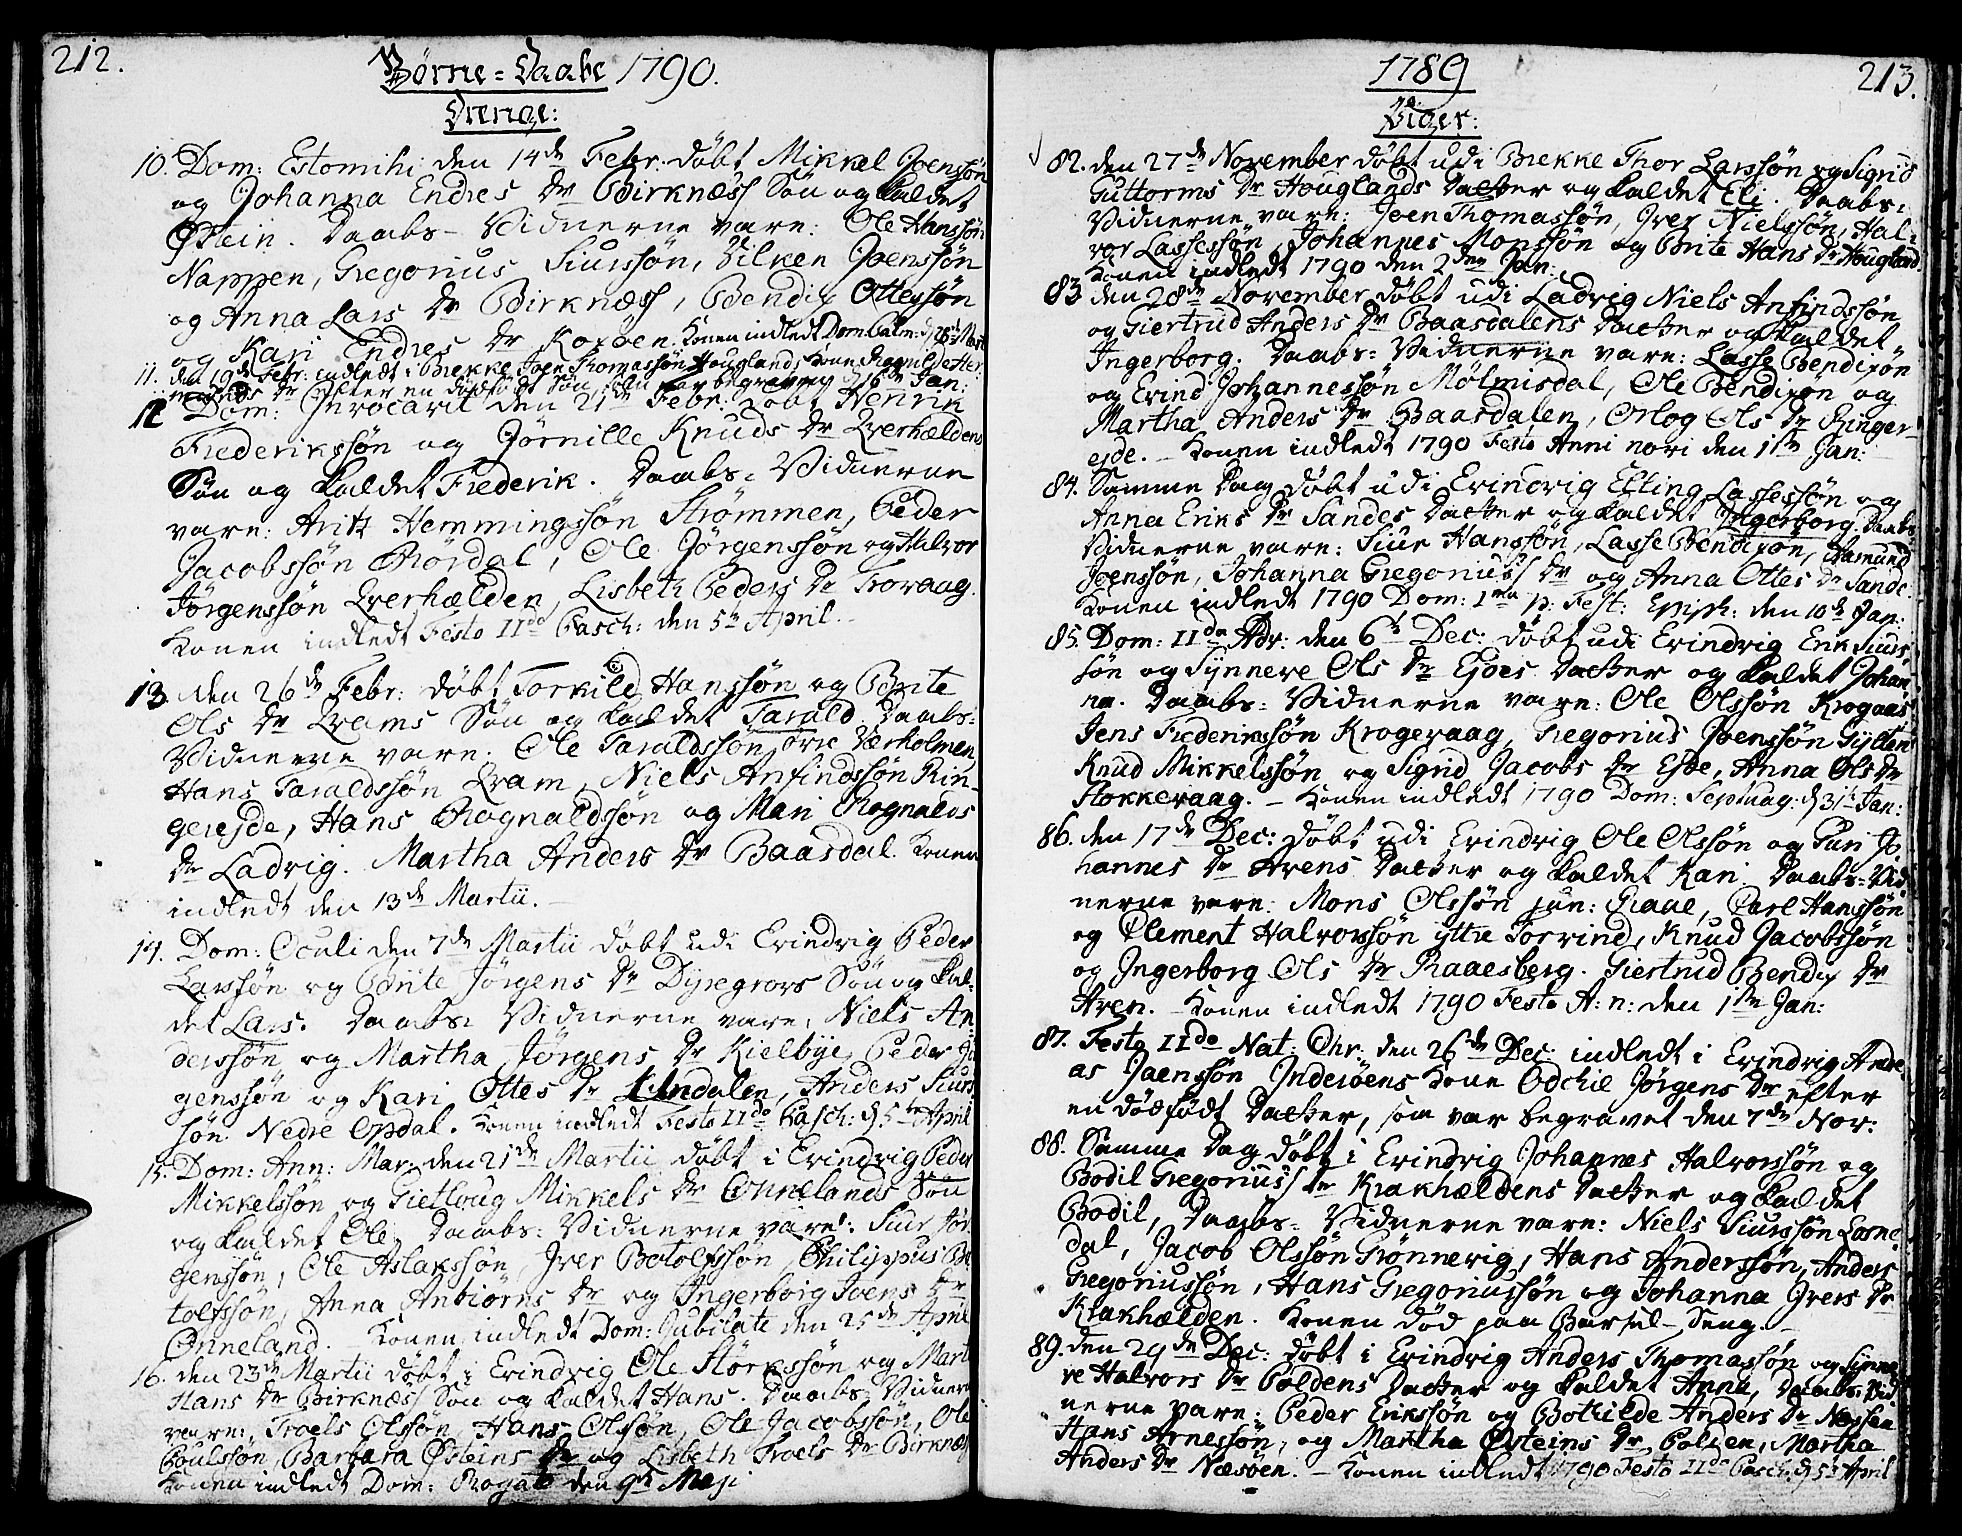 212.
Børne-Daabe 1790.
Drenge:
10. Dom: Estomihi den 14de Febr: døbt Mikkel Joenssøn
og Johanna Endres Dr Birknæss Søn og kaldet
Østein. Daabs-Vidnerne vare: Ole Hanssøn
Nappen, Gregorius Siurssøn, Vilken Joenssøn
og Anna Lars Dr Birknæss, Bendix Ottessøn
og Kari Endres Dr Konen indledt Dom Palm:
11. den 19de Febr: indledt i Brekke Joen Thomassøn Houglands Kone Ragnilde Her
Dr efter en dødfødt Søn, som var begraven d 16de Jan:
12 Dom: Invocavit den 21de Febr: døbt Henrik
Frederikssøn og Jørnille Knuds Dr Qverhældens
Søn og kaldet Frederik. Daabs-Vidnerne
vare: Aritz Hemmingssøn Strømmen, Peder
Jacobssøn Rørdal, Ole Jørgenssøn og Halvor
Jørgenssøn Qverhælden, Lisbeth Peders Dr Torvaag.
Konen indledt Festo IIdo Pasch: den 5te April.
13 den 26de Febr: døbt Torkild Hanssøn og Brite
Ols Dr Qvams Søn og kaldet Tarald. Daabs-
Vidnerne vare: Ole Taraldssøn øvre Værholmen,
Hans Taraldssøn Qvam, Niels Anfindssøn Rin-
gerejde, Hans Rognaldssøn og Mari Rognalds
Dr Ladvig. Martha Anders Dr Baasdal. Konen
indledt den 13de Martii.
14. Dom: Oculi den 7de Martii døbt udi Evindvig Peder
Larssøn og Brite Jørgens Dr Dyregrovs Søn og kal-
det Lars. Daabs-Vidnerne vare: Niels An-
derssøn og Martha Jørgens Dr Kielbye, Peder Jør
genssøn og Kari Ottes Dr Andalen, Anders Siurs
søn Nedre Opdal. Konen indledt Festo IIdo Pasch: d 5te April
15. Dom: Ann: Mar: den 21de Martii døbt i Evindvig Peder
Mikkelssøn og Gietloug Mikkels Dr Onnelands Søn
og kaldet Ole. Daabs-Vidnerne vare: Siur Jør
genssøn, Ole Aslakssøn, Iver Botolfssøn, Philippus Bo
tolfssøn, Anna Anbiørns Dr og Ingerborg Joens Dr
Onneland. Konen indledt Dom: Jubilate den 25de April
16. den 23de Martii døbt i Evindvig Ole Størkssøn og Mart
Hans Dr Birknæss Søn og kaldet Hans. Daabs-Vidnern
vare: Troels Olssøn, Hans Olssøn, Ole Jacobssøn, Ole
Poulssøn, Barbara Østeins Dr og Lisbeth Troels Dr Birknæs
Konen indledt Dom: Rogate den 9de Maji
1789
213.
Piger:
82. den 27de November døbt udi Brekke Thor Larssøn og Sigrid
Guttorms Dr Houglands Datter og kaldet Eli. Daabs-
Vidnerne vare: Joen Thomassøn, Iver Nielssøn, Hal-
vor Lassessøn, Johannes Monssøn og Brite Hans Dr Hougland
Konen indledt 1790 den 2den Jan:
83 den 28de November døbt udi Ladvig Niels Anfindssøn
og Giertrud Anders Dr Baasdalens Datter og kaldet
Ingerborg. Daabs-Vidnerne vare: Lasse Bendixøn
og Evind Johannessøn Mølmisdal, Ole Bendixøn og
Martha Anders Dr Baasdalen, Orlog Ols Dr Ringer-
ejde. – Konen indledt 1790 Festo Anni novi den 1ste Jan:
84. Samme Dag døbt udi Evindvig Elling Lassessøn og
Anna Eriks Dr Sandes Datter og kaldet Ingerborg. Daabs-
Vidnerne vare: Siur Hanssøn, Lasse Bendixøn, Aamund
Joenssøn, Johanna Gregoriuss Dr og Anna Ottes Dr Sande.
Konen indledt 1790 Dom: 1ma p: Fest: Epiph: den 10de Jan:
85. Dom: IIda Adv: den 6te Dec: døbt udi Evindvig Erik Siurs-
søn og Synneve Ols Dr Ejdes Datter og kaldet Johan-
na. Daabs-Vidnerne vare: Ole Olssøn Krogaas
Jens Frederikssøn Krogevaag, Gregorius Joenssøn Gylten
Knud Mikkelssøn og Sigrid Jacobs Dr Ejde, Anna Ols Dr
Stokkevaag. – Konen indledt 1790 Dom: Septuag: d 31te Jan:
86. den 17de Dec: døbt udi Evindvig Ole Olssøn og Guri Jo
hannes Dr Avens Datter og kaldet Kari. Daabs-Vid
nerne vare: Mons Olssøn jun: Graae, Carl Hanssøn
og Clement Halvorssøn yttre Torvind, Knud Jacobssøn
og Ingerborg Ols Dr Raaesberg. Giertrud Bendix Dr
Aven. – Konen indledt 1790 Festo A: n: den 1ste Jan:
87. Festo IIdo Nat: Chr: den 26de Dec: indledt i Evindvig Andre-
as Jaenssøn Inderøens Kone Odchie Jørgens Dr efter
en dødfødt Datter, som var begravet den 7de Nov:
88. Samme Dag døbt i Evindvig Johannes Halvorssøn og
Bodil Gregoriuss Dr Krakhældens Datter og kaldet
Bodil, Daabs-Vidnerne vare: Niels Siurssøn Losne-
dal, Jacob Olssøn Grønnevig, Hans Anderssøn, Anders
Gregoriussøn, Hans Gregoriussøn og Johanna Ivers Dr
Krakhælden. Konen død paa Barsel-Seng. –
89. den 29de Dec: døbt i Evindvig Anders Thomassøn og Synne-
ve Halvors Dr Poldens Datter og kaldet Anna, Daabs-Vid
nerne vare: Peder Erikssøn og Bothilde Anders Dr Næssen
Hans Arnessøn, og Martha Østeins Dr Polden, Martha
Anders Dr Næsøen. – Konen indledt 1790 Festo IIdo Pasch: d 5te April